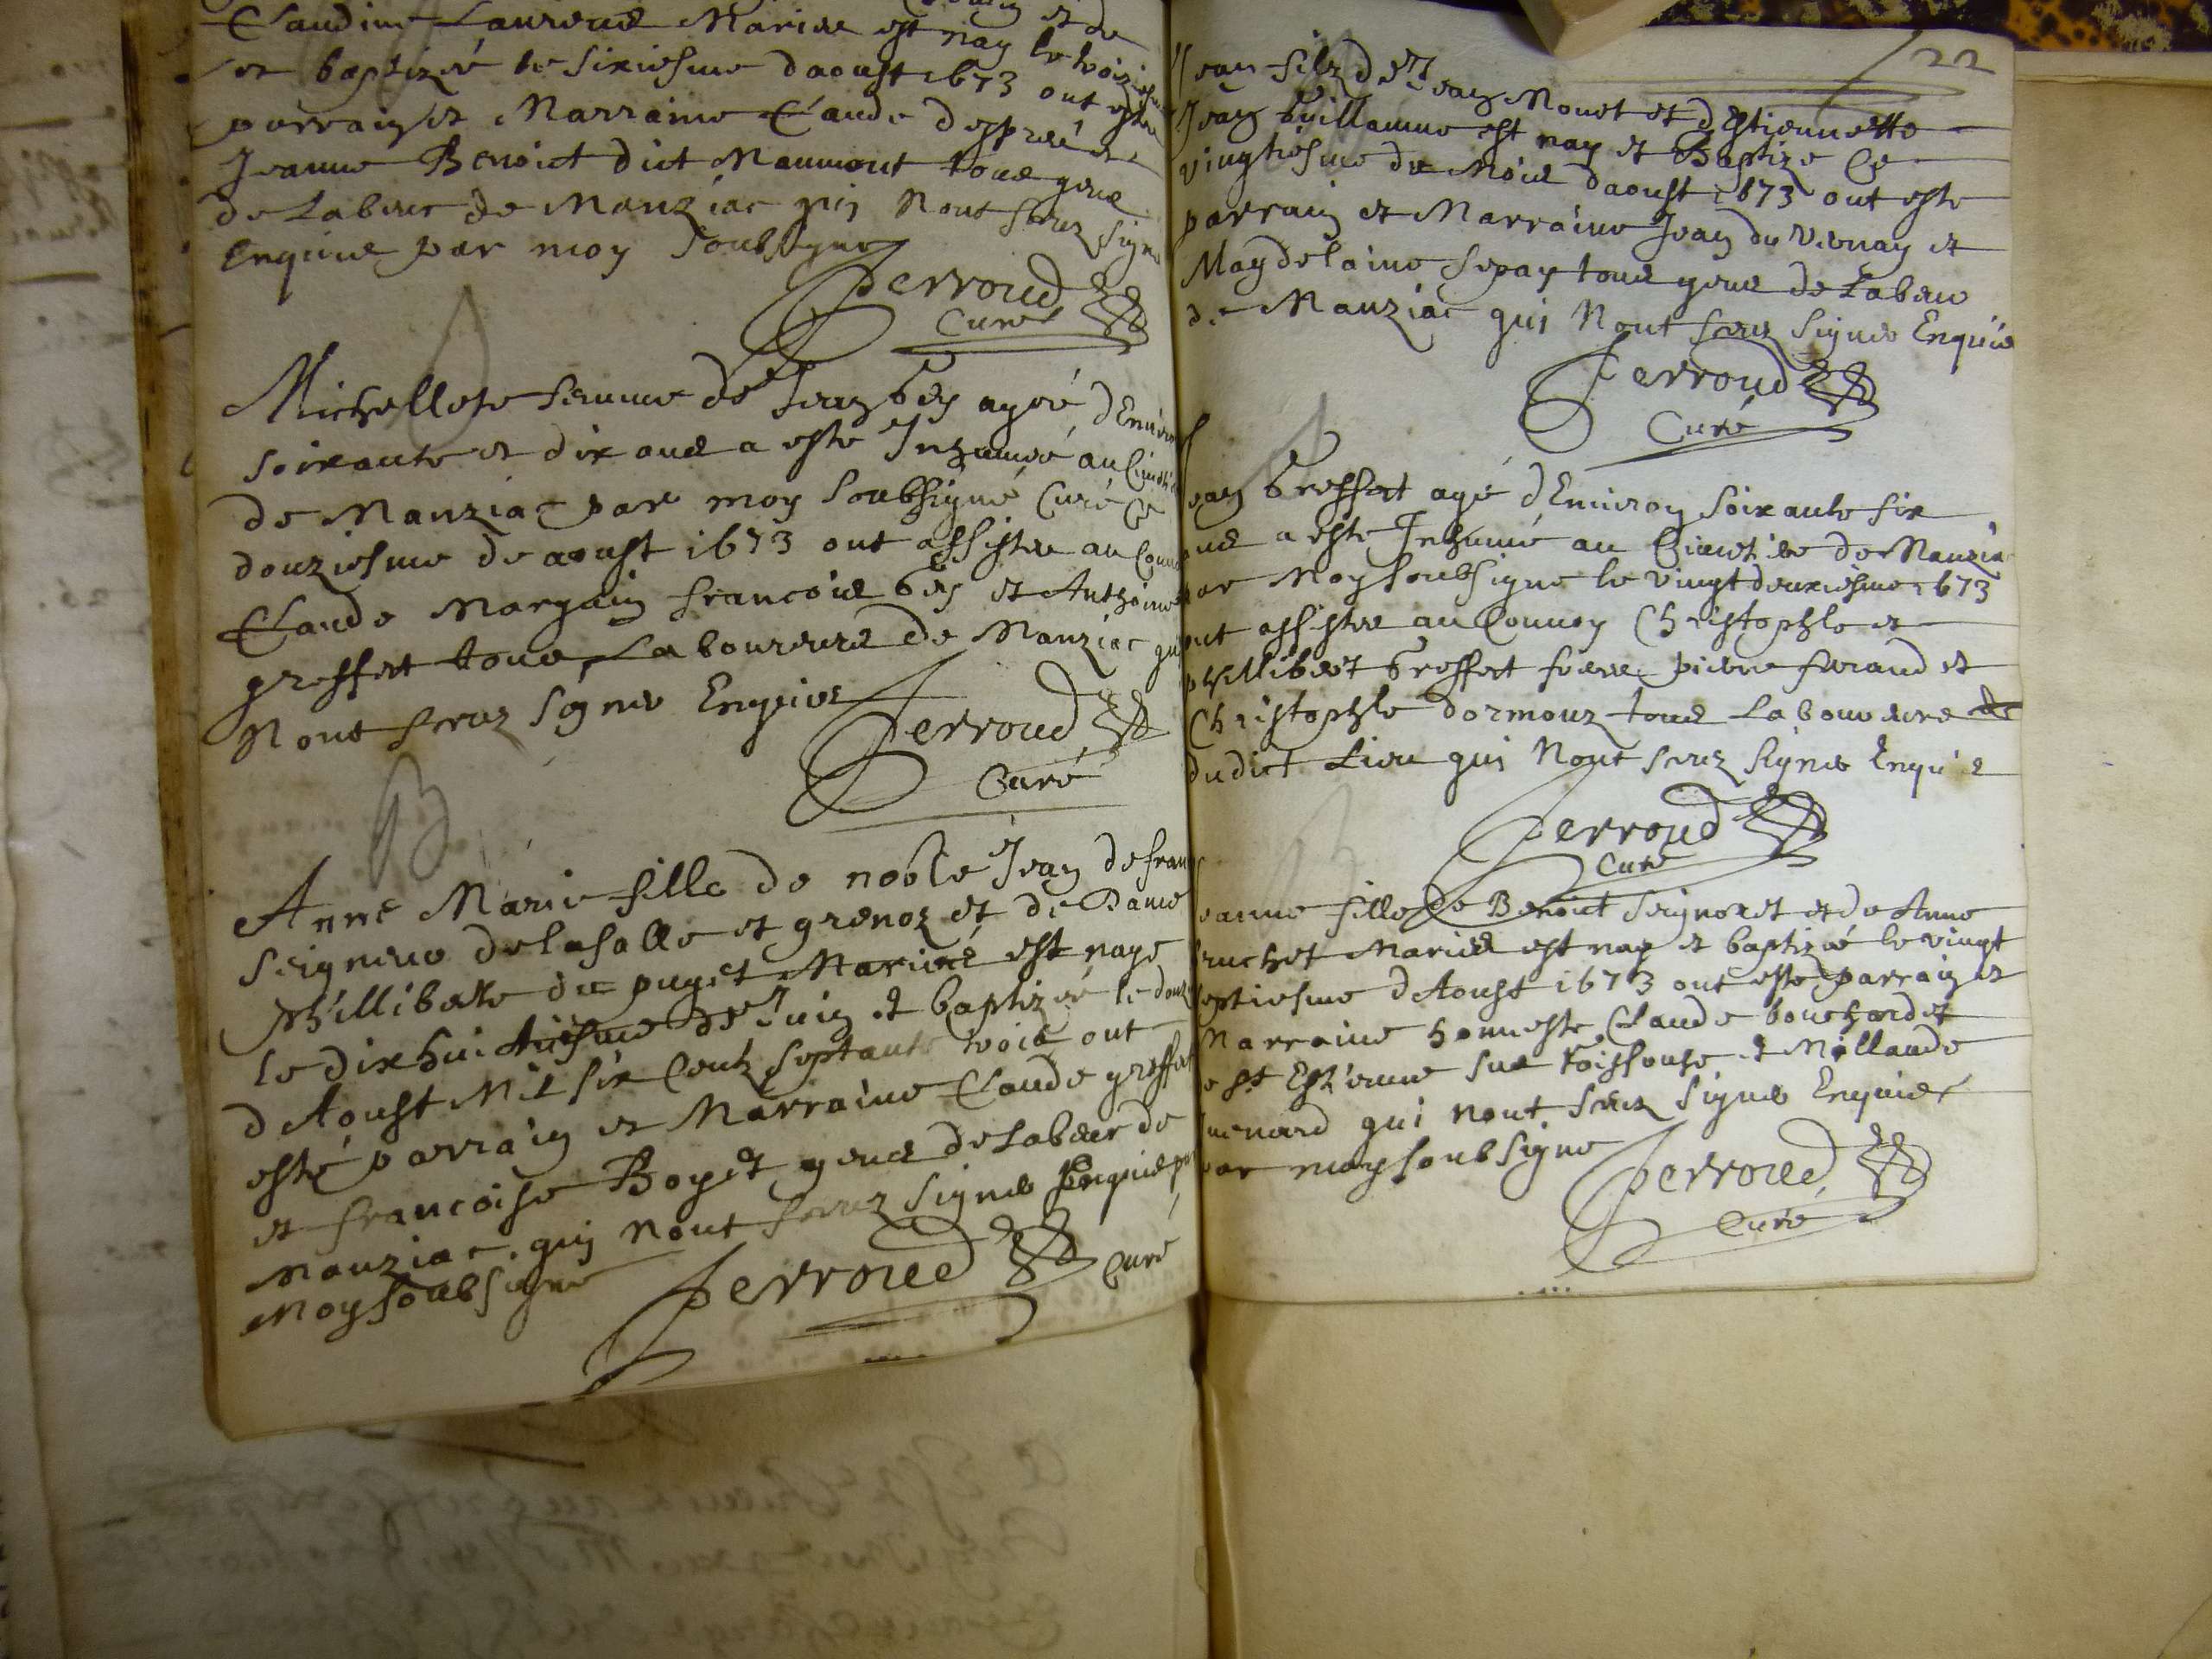 Claudine Laurens Mariee est nay le troiziesme
et baptizée le sixiesme daoust 1673 ont esté
parrain et Marraine Claude despré et
Jeanne Benoict dict Maumont tous gens
de Labeur de Manziac qui Nont sceuz signe
Enquis par moy soubsigne
Perroud
Curé
Michellete femme de Jean agee dEnviron
soixante et dix ans a esté Inhumée au
de Manziac par moy soubsigné Curé Ce
douziesme de aoust 1673 ont assisté au
Claude Margain francois et Anthoine
greffet tous Laboureurs de Manziac qui
Nont sceuz signer Enquis
Perroud
Curé
Anne Marie fille de noble Jean de franc
seigneur delasalle et grenoz et de Dame
Philliberte du puget Mariés est naye
le dixhuictiesme de Juin et baptizée le
dAoust Mil six Centz septante trois ont
esté parrain et Marraine Claude greffet
et francoise Boyet gens de Labeur de
Manziac qui Nont sceuz signer Enquis par
Moy soubsigné
Perroud Curé
22
Jean filz de Jean Monet et dEstiennette
Jean Guillaume est nay et Baptize Ce
vingtiesme du Mois daoust 1673 ont esté
parrain et Marraine Jean du Vernay et
Magdelaine Sepay tous gens de Labeur
de Manziac qui Nont sceuz signer Enquis
Perroud
Curé
Jean Greffet agé dEnviron soixante six
ans a esté Inhumé au Cimetiere de Manziac
par Moy soubsigne le vingt deuxiesme 1673
ont assisté au Convoy Christophle et
phillibert Greffet freres pierre feraud et
Christophle dormouz tous Laboureurs de
dudict Lieu qui Nont sceuz signer Enquis
Perroud
Curé
Jeanne fille de Benoict seignoret et de Anne
Mariés est nay et baptizée le vingt
septiesme dAoust 1673 ont esté parrain et
Marraine honneste Claude bouchard et
de St Estienne sur Roissouse et Millande
qui nont sceuz signer Enquis
par moy soubsigne
Perroud
Curé